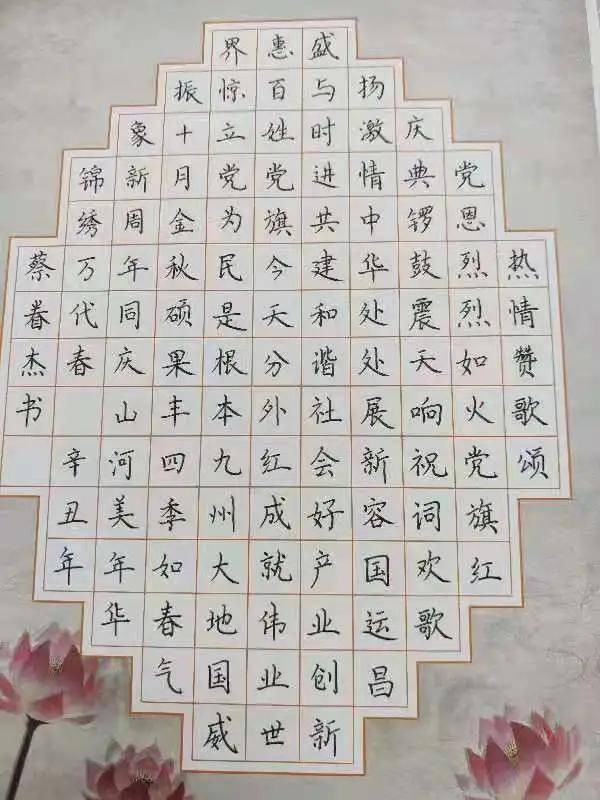 热情赞歌颂
党恩烈烈如火党旗红
庆典锣鼓震天响祝词欢歌
扬激情中华处处展新容国运昌
盛与时进共建和谐社会好产业创新
惠百姓党旗今天分外红成就伟业世
界惊立党为民是根本九州大地国威
振十月金秋硕果丰四季如春气
象新周年同庆山河美年华
锦绣万代春 辛丑年
蔡眷杰书